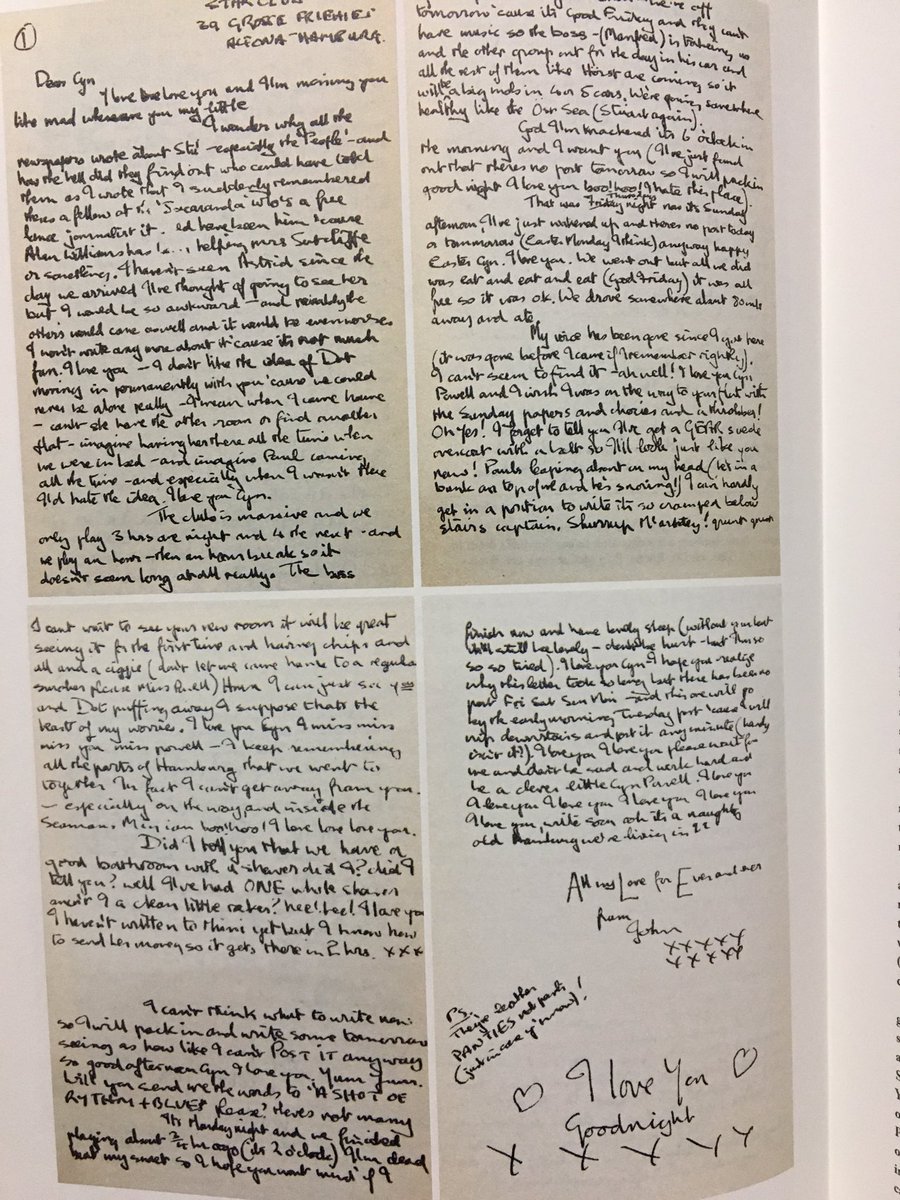 ①
STAR CLUB
39 GROSSE FREIHEIT
ALTONA HAMBURG.
Dear Cyn
I love love love you and I'm missing you
like mad where are you my little
I wonder why all the
newspapers wrote about Stu – especially the 'People' – and
how the hell did they find out who could have told
them as I wrote that I suddenly remembered
theres a fellow at the 'Jacaranda' who's a free
lance journalist it. ed have been him 'cause
Alan Williams has helping mrs Sutcliffe
or something. I haven't seen Astrid since the
day we arrived I've thought of going to see her
but I would be so awkward – and probably the
others would come as well and it would be even worse
I won't write any more about it 'cause its not much
fun. I love you – I don't like the idea of Dot
moving in permanently with you 'cause we could
never be alone really – I mean when I come home
– can't she have the other room or find another
flat – imagine having her there all the time when
we were in bed – and imagine Paul coming
all the time – and especially when I wasn't there
I'd hate the idea. I love you Cyn.
The club is massive and we
only play 3 hrs one night and 4 the next – and
we play an hour – then an hours break so it
doesn't seem long at all really. The boss
off
tomorrow 'cause its Good Friday and they cant
have music so the boss – (Manfred) is taking us
and the other group out for the day in his car and
all the rest of them like Horst are coming, so it
will be a big mob in 4 or 5 cars. We're going somewhere
healthy like the Ost Sea (Stuart again).
God I'm knackered its 6 o'clock in
the morning and I want you (I've just found
out that theres no post tomorrow so I will pack in
good night I love you boo! hoo! I hate this place).
That was Friday Thursday night now its Sunday
afternoon, I've just wakened up and theres no post today
or tomorrow (Easter Monday I think) anyway happy
Easter Cyn. I love you. We went out but all we did
was eat and eat and eat (Good Friday) it was all
free so it was ok. We drove somewhere about 80 mls
away and ate.
My voice has been gone since I got here
(it was gone before I came if I remember rightly).
I can't seem to find it – ah well! I love you Cyn
Powell and I wish I was on the way to your flat with
the Sunday papers and chocies and a throbber!
Oh Yes! I forgot to tell you I've got a GEAR suede
overcoat with a belt so I'll look just like you
now! Pauls leaping about on my head (he's in a
bunk on top of me and he's snoring!) I can hardly
get in a position to write its so cramped below
stairs captain. Shurrup Mcartney! grunt grunt
I cant wait to see your new room it will be great
seeing it for the first time and having chips and
all and a ciggie (don't let me come home to a regular
smoker please Miss Powell) Hmm I can just see you
and Dot puffing away I suppose thats the
least of my worries. I love you Cyn I miss miss
miss you miss powell – I keep remembering
all the parts of Hamburg that we went to
together In fact I can't get away from you
– especially on the way, and inside the
Seaman. Mission boo! hoo! I love love love you.
Did I tell you that we have a
good bathroom with a shower did I? did I
tell you? well I've had ONE whole shower
aren't I a clean little raker? hee! hee! I love you
I haven't written to Mimi yet but I know how
to send her money so it gets there in 2 hrs. xxx
I can't think what to write now
so I will pack in and write some tomorrow
seeing as how like I can't POST IT anyway
so good afternoon Cyn I love you, Yum Yum.
Will you send me the words to 'A SHOT OF
RYTHM + BLUES' Please? theres not many
Its Monday night and we finished
playing about 2 hr ago (its 2 o'clock) I'm dead
beat my sweet so I hope you wont mind if I
finish now and have lovely sleep (without you but
it'll still be lovely – dont be hurt – but I'm so
so so tired). I love you Cyn I hope you realize
why this letter took so long but there has been no
post Fri Sat Sun Mon – and this one will go
by the early morning Tuesday post 'cause I will
nip downstairs and post it any minute (handy
isn't it?). I love you I love you please wait for
me and don't be sad and work hard and
be a clever little Cyn Powell. I love you
I love you I love you I love you I love you
I love you, write soon ooh its a naughty
old Hamburg we're living in !!
All my Love for Ever and ever
from
John
xxxxx
xxxxx
PS.
leather
PANTIES
(just in case y'know)!
♡ I love You ♡
Goodnight
X X X X X